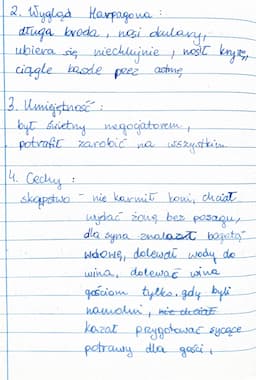 2. Wygląd Harpagona :
długa broda, nosi okulary,
ubiera się niechlujnie, nosi kryzę,
ciągle kaszle przez astmę
3. Umiejętność :
był świetny negocjatorem,
potrafił zarobić na wszystkim
4. Cechy :
skąpstwo - nie karmił koni, chciał
wydać żonę bez posagu,
dla syna znalazł bogatą
wdowę, dolewał wody do
wina, dolewać wina
gościom tylko gdy byli
namolni, nie chciał
kazał przygotować sycące
potrawy dla gości,